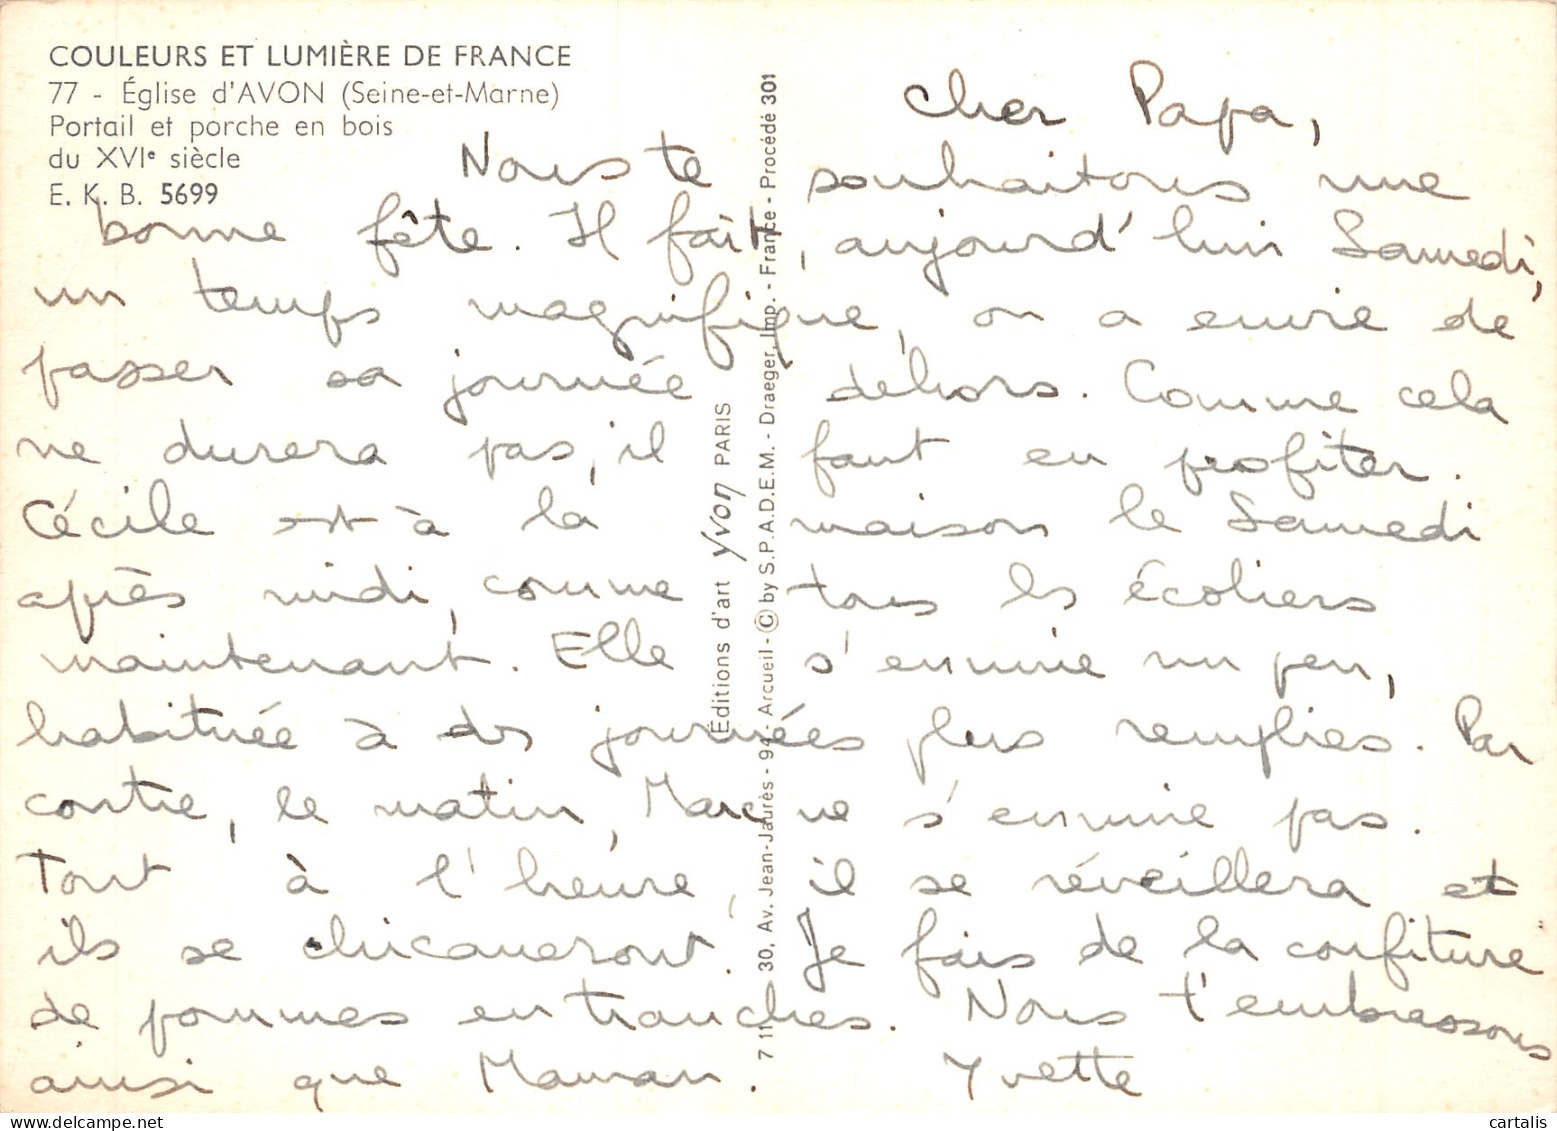 COULEURS ET LUMIÈRE DE FRANCE
77 - Église d'AVON (Seine-et-Marne)
Portail et porche en bois
du XVIe siècle
E. K. B. 5699
Cher Papa,
Nous te souhaitons une
bonne fête. Il fait, aujourd'hui Samedi,
un temps magnifique, on a envie de
passer sa journée dehors. Comme cela
ne durera pas, il faut en profiter.
Cécile est à la maison le Samedi
après midi, comme tous les écoliers
maintenant. Elle s'ennuie un peu,
habituée à des journées plus remplies. Par
contre, le matin, Marc ne s'ennuie pas.
Tout à l'heure, il se réveillera et
ils se chicaneront. Je fais de la confiture
de pommes en tranches. Nous t'embrassons
ainsi que Maman. Yvette
Éditions d'art yvon PARIS
7 11 30, Av. Jean-Jaurès - 94 - Arcueil - © by S.P.A.D.E.M. - Draeger, Imp. - France - Procédé 301
cartalis